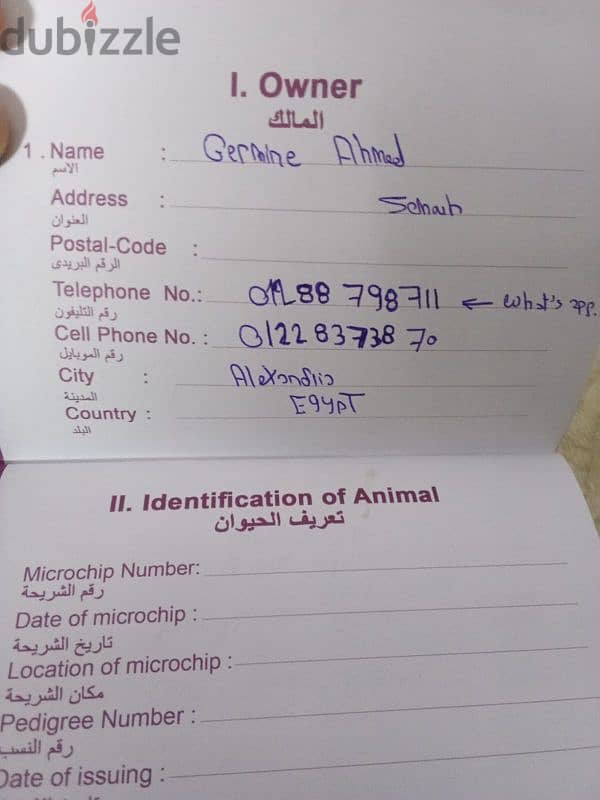 dubizzle
I. Owner
المالك
1 . Name : Germine Ahmed
الاسم
Address :
العنوان
Postal-Code :
الرقم البريدى
Telephone No.: 01288 798711 ← What's app.
رقم التليفون
Cell Phone No. : 0122 83738 70
رقم الموبايل
City : Alexandria
المدينة
Country : Egypt
البلد
II. Identification of Animal
تعريف الحيوان
Microchip Number:
رقم الشريحة
Date of microchip :
تاريخ الشريحة
Location of microchip :
مكان الشريحة
Pedigree Number :
رقم النسب
Date of issuing :